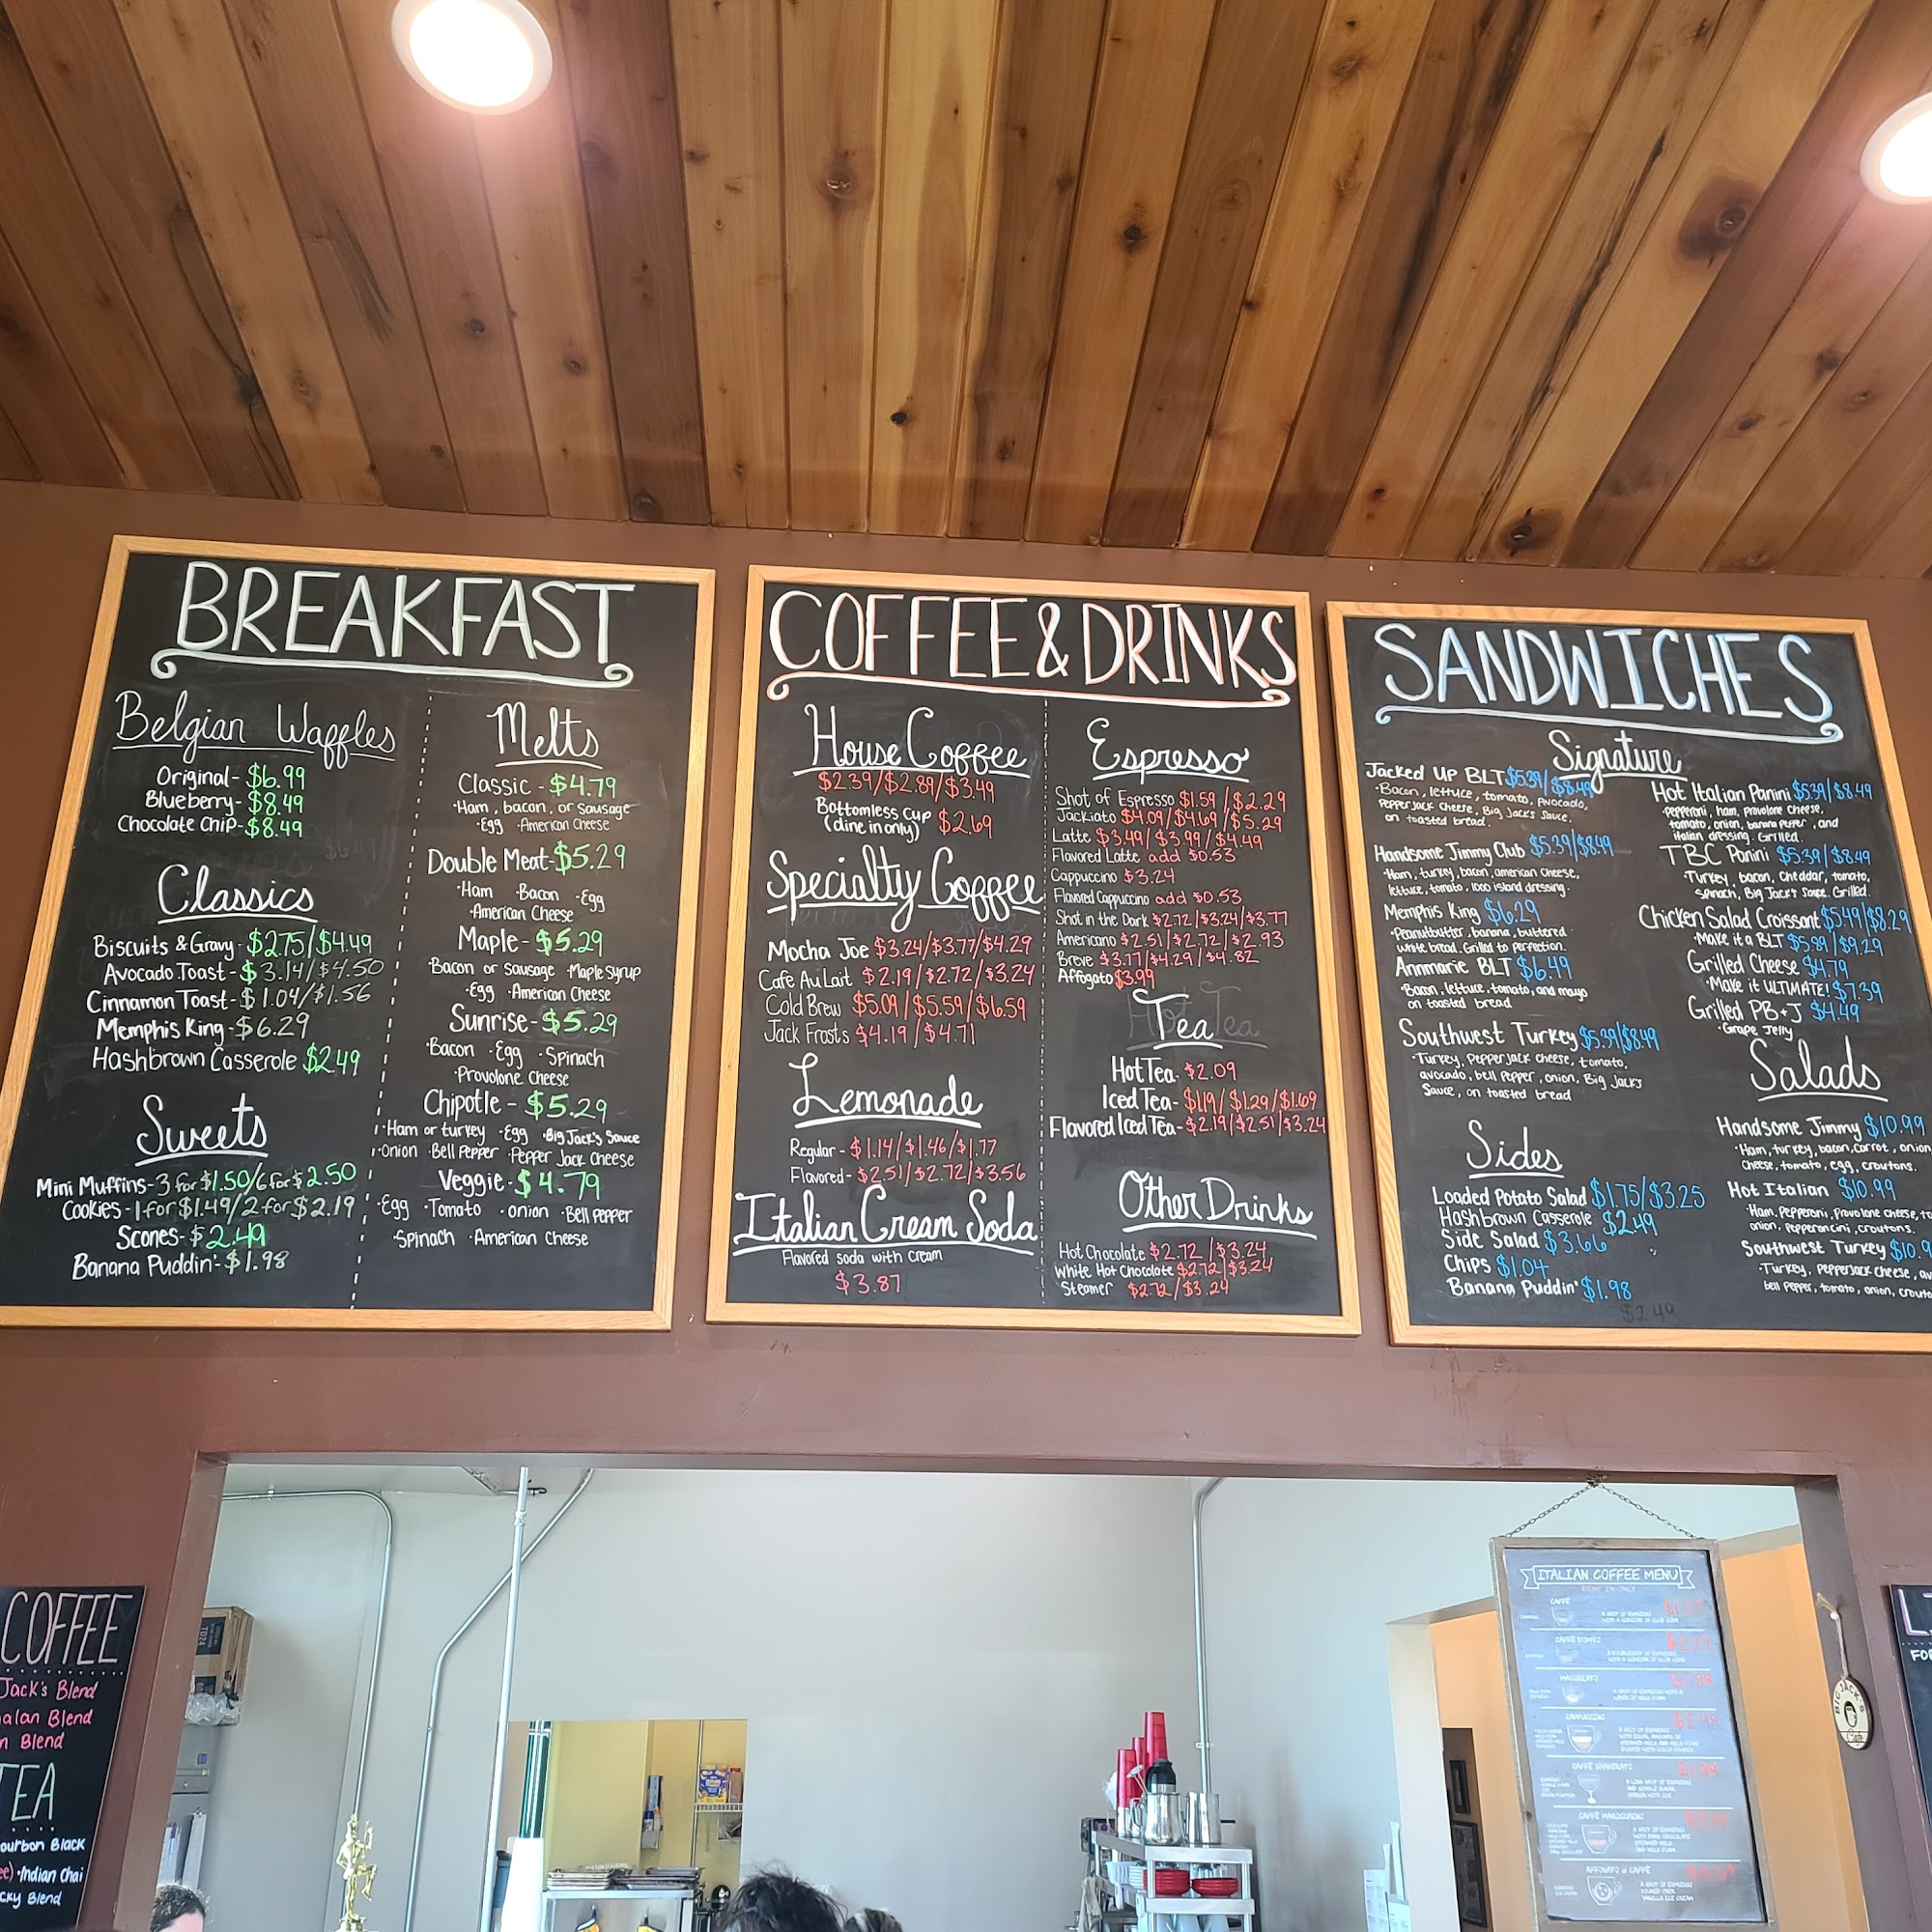 BREAKFAST
Belgian Waffles
Original- $6.99
Blueberry- $8.49
Chocolate Chip- $8.49
Classics
Biscuits & Gravy- $2.75/$4.49
Avocado Toast- $3.14/$4.50
Cinnamon Toast- $1.04/$1.56
Memphis King- $6.29
Hashbrown Casserole $2.49
Sweets
Mini Muffins- 3 for $1.50/6 for $2.50
Cookies- 1 for $1.49/2 for $2.19
Scones- $2.49
Banana Puddin'- $1.98
Melts
Classic - $4.79
·Ham, bacon, or sausage
·Egg ·American Cheese
Double Meat- $5.29
·Ham ·Bacon ·Egg
·American Cheese
Maple- $5.29
·Bacon or sausage ·Maple syrup
·Egg ·American Cheese
Sunrise- $5.29
·Bacon ·Egg ·Spinach
·Provolone Cheese
Chipotle - $5.29
·Ham or turkey ·Egg ·Big Jack's Sauce
·Onion ·Bell Pepper ·Pepper Jack Cheese
Veggie- $4.79
·Egg ·Tomato ·onion ·Bell Pepper
·Spinach ·American Cheese
COFFEE & DRINKS
House Coffee
$2.39/$2.89/$3.49
Bottomless Cup
(dine in only) $2.69
Specialty Coffee
Mocha Joe $3.24/$3.77/$4.29
Cafe Au Lait $2.19/$2.72/$3.24
Cold Brew $5.09/$5.59/$6.59
Jack Frosts $4.19/$4.71
Lemonade
Regular - $1.14/$1.46/$1.77
Flavored- $2.51/$2.72/$3.56
Italian Cream Soda
Flavored soda with cream
$3.87
Espresso
Shot of Espresso $1.59/$2.29
Jackiato $4.09/$4.69/$5.29
Latte $3.49/$3.99/$4.49
Flavored Latte add $0.53
Cappuccino $3.24
Flavored Cappuccino add $0.53
Shot in the Dark $2.72/$3.24/$3.77
Americano $2.51/$2.72/$2.93
Breve $3.77/$4.29/$4.82
Affogato $3.99
Tea
Hot Tea $2.09
Iced Tea- $1.19/$1.29/$1.69
Flavored Iced Tea- $2.19/$2.51/$3.24
Other Drinks
Hot Chocolate $2.72/$3.24
White Hot Chocolate $2.72/$3.24
Steamer $2.72/$3.24
SANDWICHES
Signature
Jacked Up BLT $5.39/$8.49
·Bacon, lettuce, tomato, avocado,
Pepperjack cheese, Big Jack's Sauce,
on toasted bread.
Handsome Jimmy Club $5.39/$8.49
·Ham, turkey, bacon, american cheese,
lettuce, tomato, 1000 island dressing.
Memphis King $6.29
·Peanutbutter, banana, buttered
white bread. Grilled to perfection.
Annmarie BLT $6.49
·Bacon, lettuce, tomato, and mayo
on toasted bread
Southwest Turkey $5.39/$8.49
·Turkey, Pepperjack cheese, tomato,
avocado, bell pepper, onion, Big Jack's
Sauce, on toasted bread
Sides
Loaded Potato Salad $1.75/$3.25
Hashbrown Casserole $2.49
Side Salad $3.66
Chips $1.04
Banana Puddin' $1.98
$2.49
Hot Italian Panini $5.39/$8.49
·Pepperoni, ham, provolone cheese,
tomato, onion, banana pepper, and
italian dressing. Grilled.
TBC Panini $5.39/$8.49
·Turkey, bacon, cheddar, tomato,
spinach, Big Jack's Sauce. Grilled.
Chicken Salad Croissant $5.49/$8.29
·Make it a BLT $5.99/$9.29
Grilled Cheese $4.79
·Make it ULTIMATE! $7.39
Grilled PB+J $4.49
·Grape Jelly
Salads
Handsome Jimmy $10.99
·Ham, turkey, bacon, carrot, onion
Cheese, tomato, egg, croutons.
Hot Italian $10.99
·Ham, Pepperoni, Provolone cheese,
onion, Pepperoncini, croutons.
Southwest Turkey $10.9
·Turkey, Pepperjack cheese,
bell pepper, tomato, onion,
COFFEE
Jack's Blend
Blend
Blend
TEA
Black
·Indian Chai
Blend
ITALIAN COFFEE MENU
DINE IN ONLY
CAFFÈ
CAFFÈ DOPPIO
$2.29
MACCHIATO
CAPPUCCINO
CAFFÈ SHAKERATO
CAFFÈ MAROCCHINO
AFFOGATO al CAFFÈ
BIG JACK'S